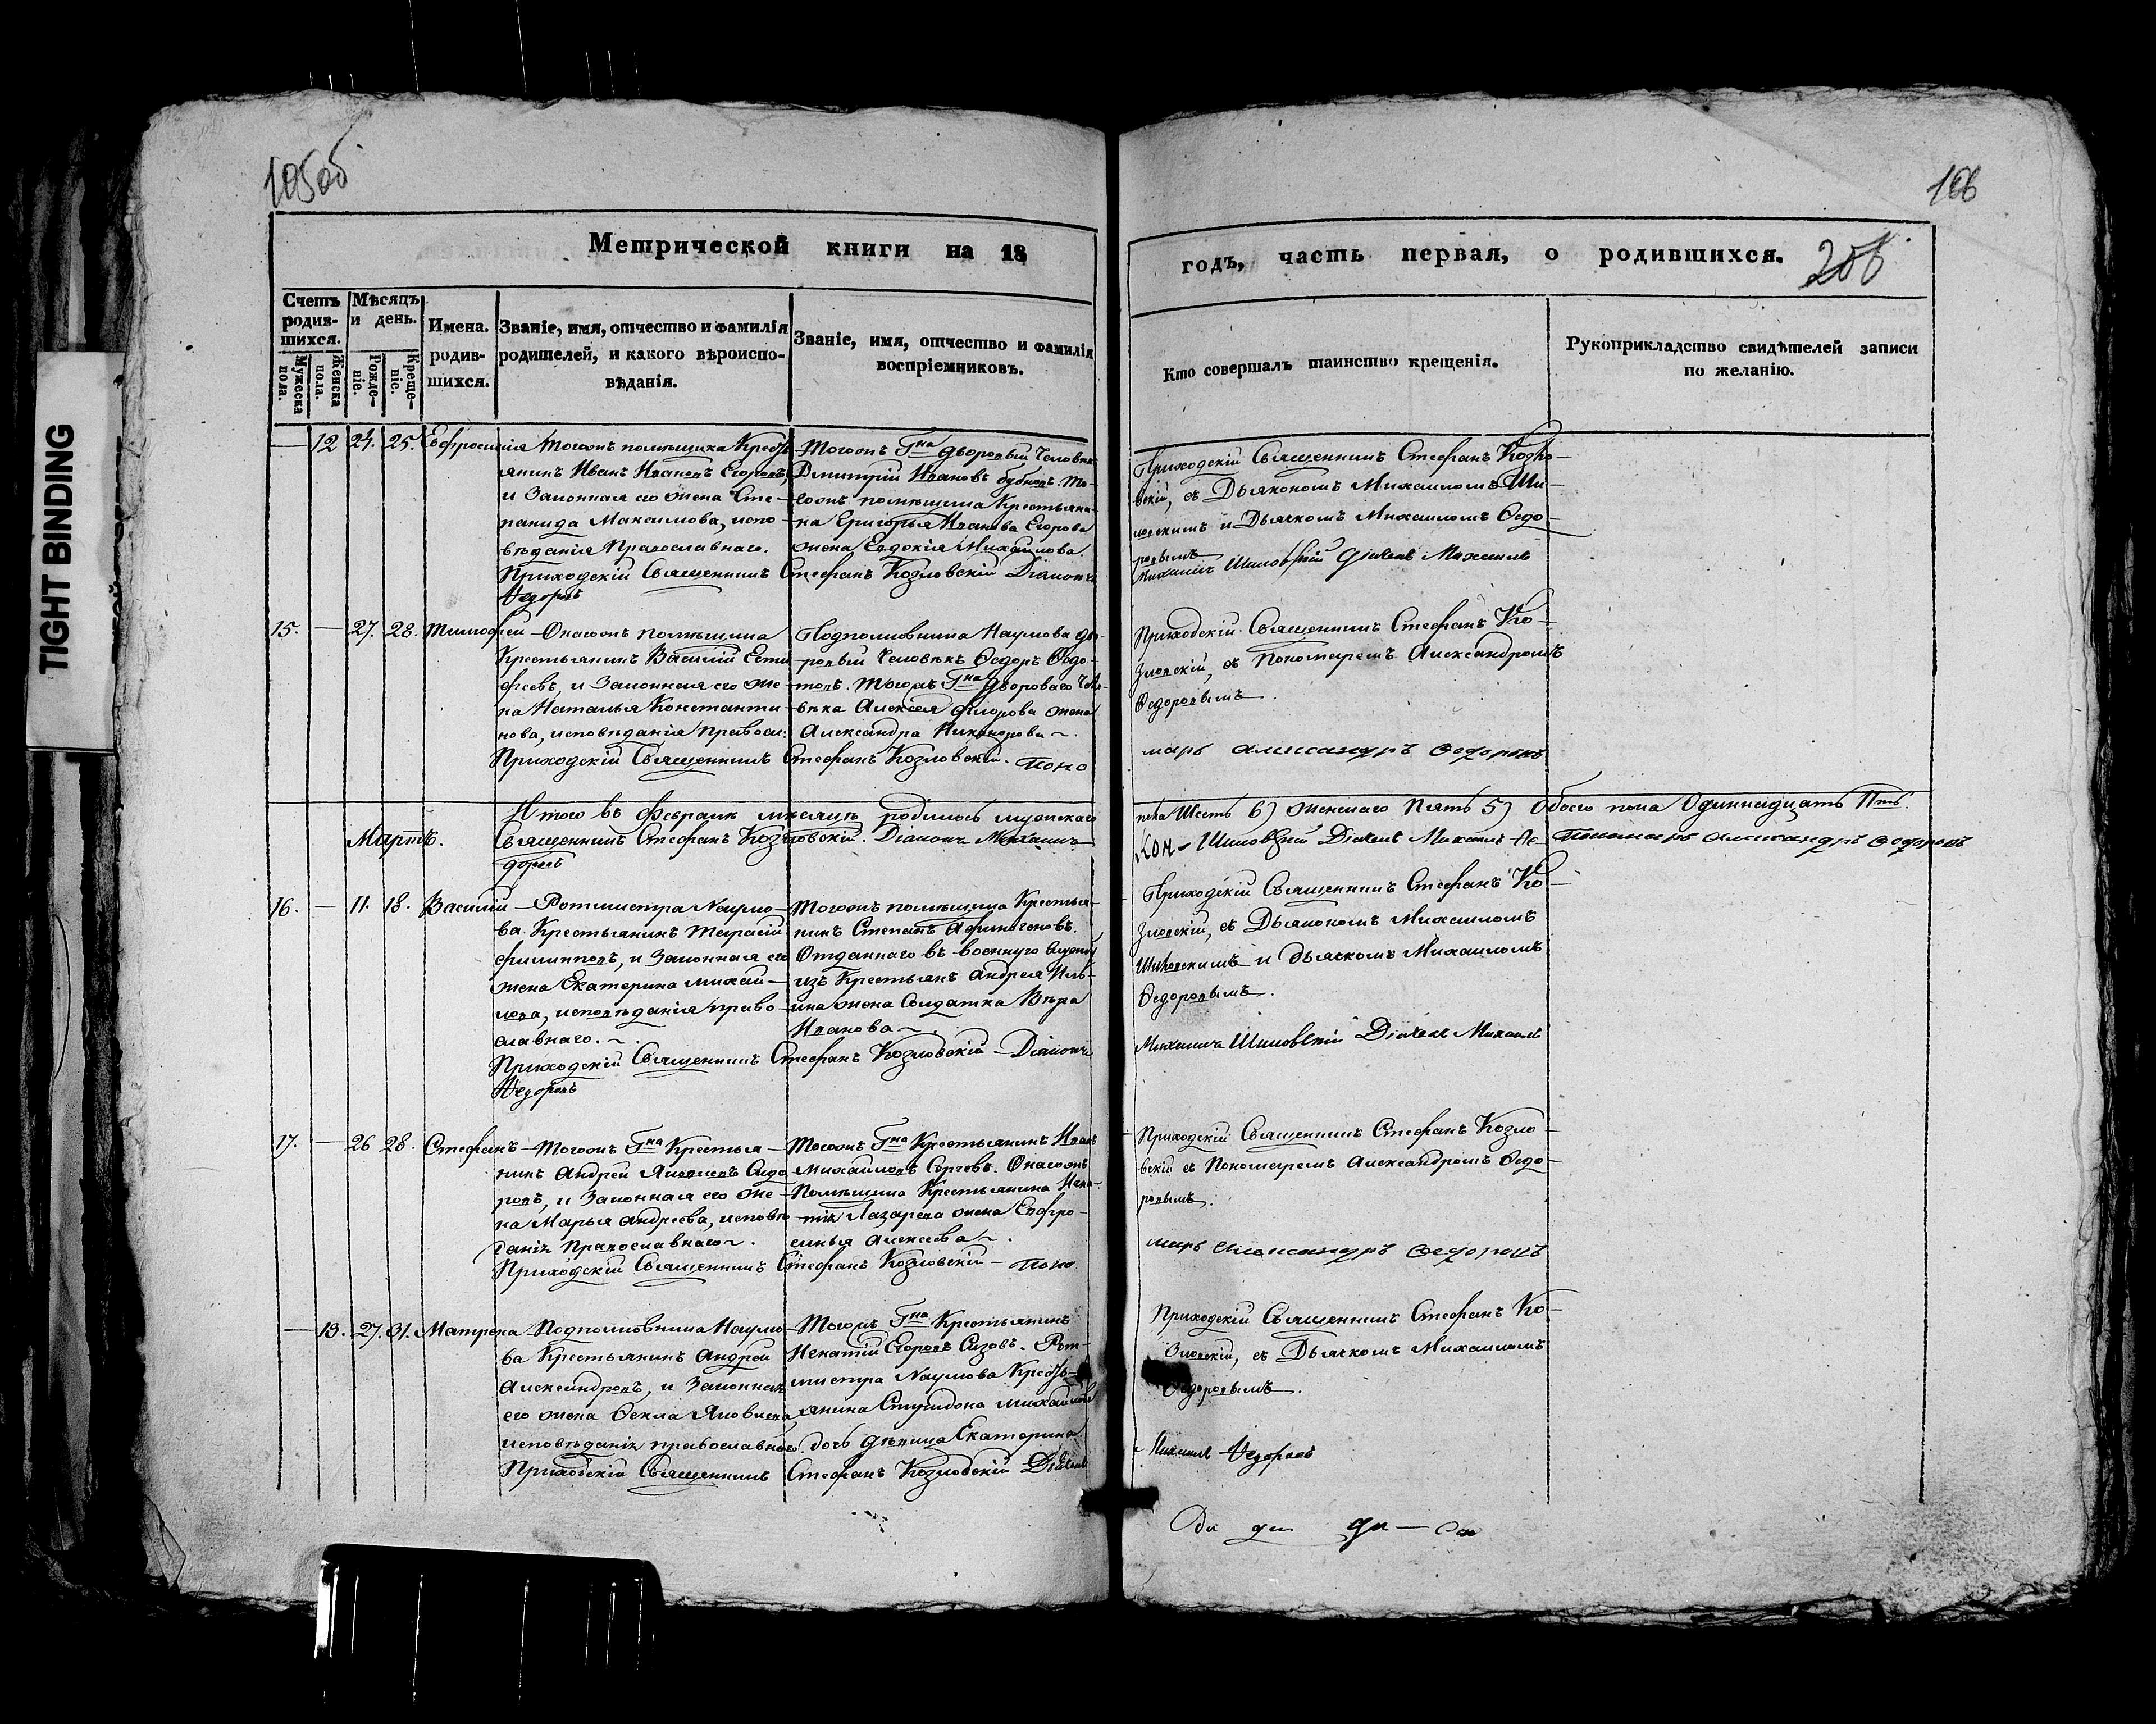 105об
106
TIGHT BINDING
Метрической книги на 18
годъ, часть первая, о родившихся.
Счетъ родив-шихся.
Мужеска пола.
Женска пола.
Мѣсяцъ и день.
Рожде-ніе.
Креще-ніе.
Имена. родив-шихся.
Званіе, имя, отчество и фамилія
родителей, и какого вѣроиспо-
вѣданія.
Званіе, имя, отчество и фамилія
воспріемниковъ.
Кто совершалъ таинство крещенія.
Рукоприкладство свидѣтелей записи
по желанію.
12 24. 25. Евфросинія
Тогожъ помѣщика Кресть
янинъ Иванъ Ивановъ Егоровъ,
и Законная его жена Сте-
панида Максимова, испо-
вѣданія Православнаго.
Тогожъ Гна дворовый Человѣкъ
Дмитрій Ивановъ Бубновъ. То-
гожъ помѣщика Крестьяни-
на Григорья Иванова Егорова
жена Евдокія Михайлова.
Приходскій Священникъ Стефанъ Козловскій Діаконъ
Федоровъ
Приходскій Священникъ Стефанъ Козло-
вскій, съ Дьякономъ Михаиломъ Ши-
ловскимъ и Дьячкомъ Михаиломъ Ѳедо-
ровымъ
Михаилъ Шиловскій Дьячекъ Михаилъ
15. — 27. 28. Тимофей
Онагожъ помѣщика
Крестьянинъ Василій Ести
феевъ, и Законная его же-
на Наталья Константи-
нова, исповѣданія Правосл:
Подполковника Наумова дво-
ровый Человѣкъ Ѳедоръ Ѳедо-
товъ. Тогожъ Гна Двороваго Чело-
вѣка Алексѣя Ѳедорова жена
Александра Никанорова.
Приходскій Священникъ Стефанъ Козловскій. Поно
Приходскій Священникъ Стефанъ Ко-
зловскій, съ Пономаремъ Александромъ
Ѳедоровымъ.
марь Александръ Ѳедоровъ
Итого въ Февралѣ мѣсяцѣ родилось мужскаго
пола Шесть 6) Женскаго Пять 5) Обоего пола Одиннадцать 11ть.
Мартъ.
Священникъ Стефанъ Козловскій. Діаконъ Михаилъ
Шиловскій Дьячекъ Михаилъ Ѳе
Пономарь Александръ Ѳедоровъ
доровъ
16. — 11. 18. Василій
Ротмистра Наумо-
ва Крестьянинъ Тарасій
Филипповъ, и Законная его
жена Екатерина Михай-
лова, исповѣданія право-
славнаго.
Тогожъ помѣщика Крестья-
нинъ Степанъ Афиногеновъ.
Отданнаго въ военную службу
изъ Крестьянъ Андрея Иль-
ина жена Солдатка Вѣра
Иванова.
Приходскій Священникъ Стефанъ Козловскій Діаконъ
Федоровъ
Приходскій Священникъ Стефанъ Ко-
зловскій, съ Дьякономъ Михаиломъ
Шиловскимъ и дьячкомъ Михаиломъ
Ѳедоровымъ.
Михаилъ Шиловскій Дьячекъ Михаилъ
17. — 26 28. Стефанъ
Тогожъ Гна Крестья-
нинъ Андрей Яковлевъ Сидо
ровъ, и Законная его же-
на Марья Андреева, исповѣ
данія Православнаго.
Тогожъ Гна Крестьянинъ Иванъ
Михайловъ Сергѣевъ. Онагожъ
Помѣщика Крестьянина Игна-
тія Лазарева жена Евфро-
синья Алексѣева.
Приходскій Священникъ Стефанъ Козловскій — Поно
Приходскій Священникъ Стефанъ Козло-
вскій съ Пономаремъ Александромъ Ѳедо-
ровымъ.
марь Александръ Ѳедоровъ
— 13. 27. 31. Матрена
Подполковника Наумо-
ва Крестьянинъ Андрей
Александровъ, и Законная
его жена Ѳекла Яковлева
исповѣданія православнаго.
Тогожъ Гна Крестьянинъ
Игнатій Егоровъ Сизовъ. Рот-
мистра Наумова Кресть-
янина Спиридона Михайлова
дочь дѣвица Екатерина.
Приходскій Священникъ Стефанъ Козловскій Дьячекъ
Приходскій Священникъ Стефанъ Ко-
зловскій, съ Дьячкомъ Михаиломъ
Ѳедоровымъ.
Михаилъ Федоровъ